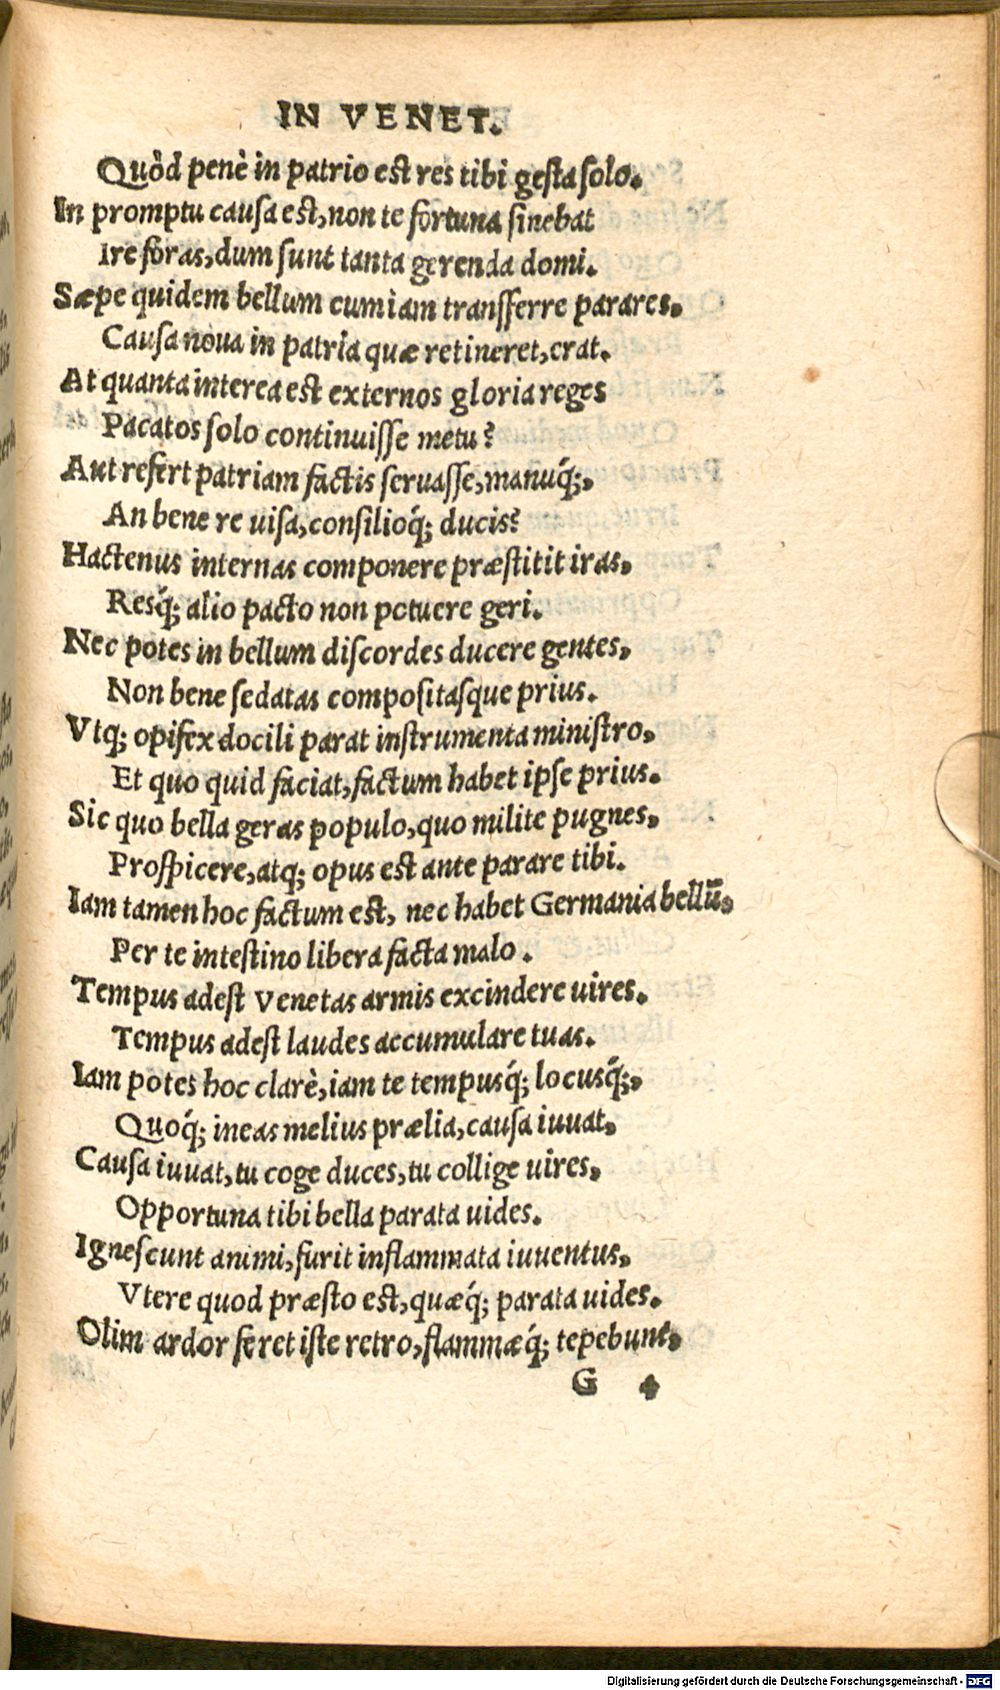 IN VENET.
Quòd penè in patrio est res tibi gesta solo.
In promptu causa est, non te fortuna sinebat
Ire foras, dum sunt tanta gerenda domi.
Sæpe quidem bellum cum iam transferre parares,
Causa noua in patria quæ retineret, erat.
At quanta interea est externos gloria reges
Pacatos solo continuisse metu?
Aut refert patriam factis seruasse, manuq́;,
An bene re uisa, consilioq́; ducis?
Hactenus internas componere præstitit iras,
Resq́; alio pacto non potuere geri.
Nec potes in bellum discordes ducere gentes,
Non bene sedatas compositasque prius.
Vtq; opifex docili parat instrumenta ministro,
Et quo quid faciat, factum habet ipse prius.
Sic quo bella geras populo, quo milite pugnes,
Prospicere, atq; opus est ante parare tibi.
Iam tamen hoc factum est, nec habet Germania bellū,
Per te intestino libera facta malo.
Tempus adest Venetas armis excindere uires,
Tempus adest laudes accumulare tuas.
Iam potes hoc clarè, iam te tempusq́; locusq́;,
Quoq́; ineas melius prælia, causa iuuat,
Causa iuuat, tu coge duces, tu collige uires,
Opportuna tibi bella parata uides.
Ignescunt animi, furit inflammata iuuentus,
Vtere quod præsto est, quæq́; parata uides.
Olim ardor feret iste retro, flammæq́; tepebunt,
G 4
Digitalisierung gefördert durch die Deutsche Forschungsgemeinschaft - DFG